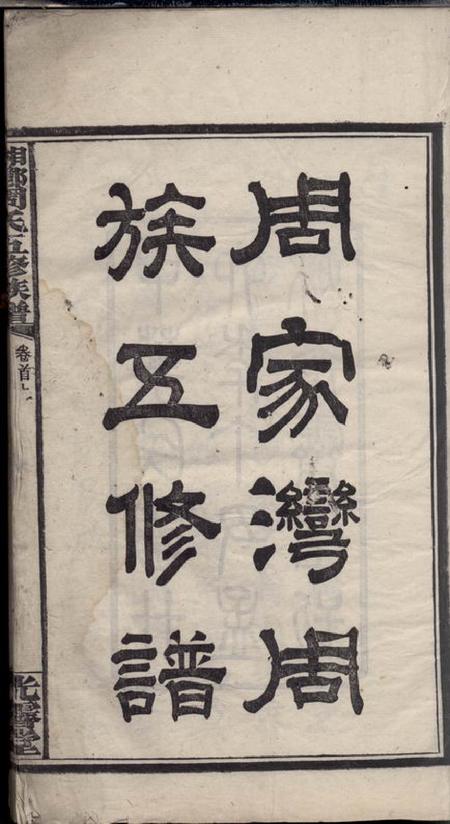 周家灣周
族五修譜
湘鄉周氏五修族譜
卷首上
光霽堂